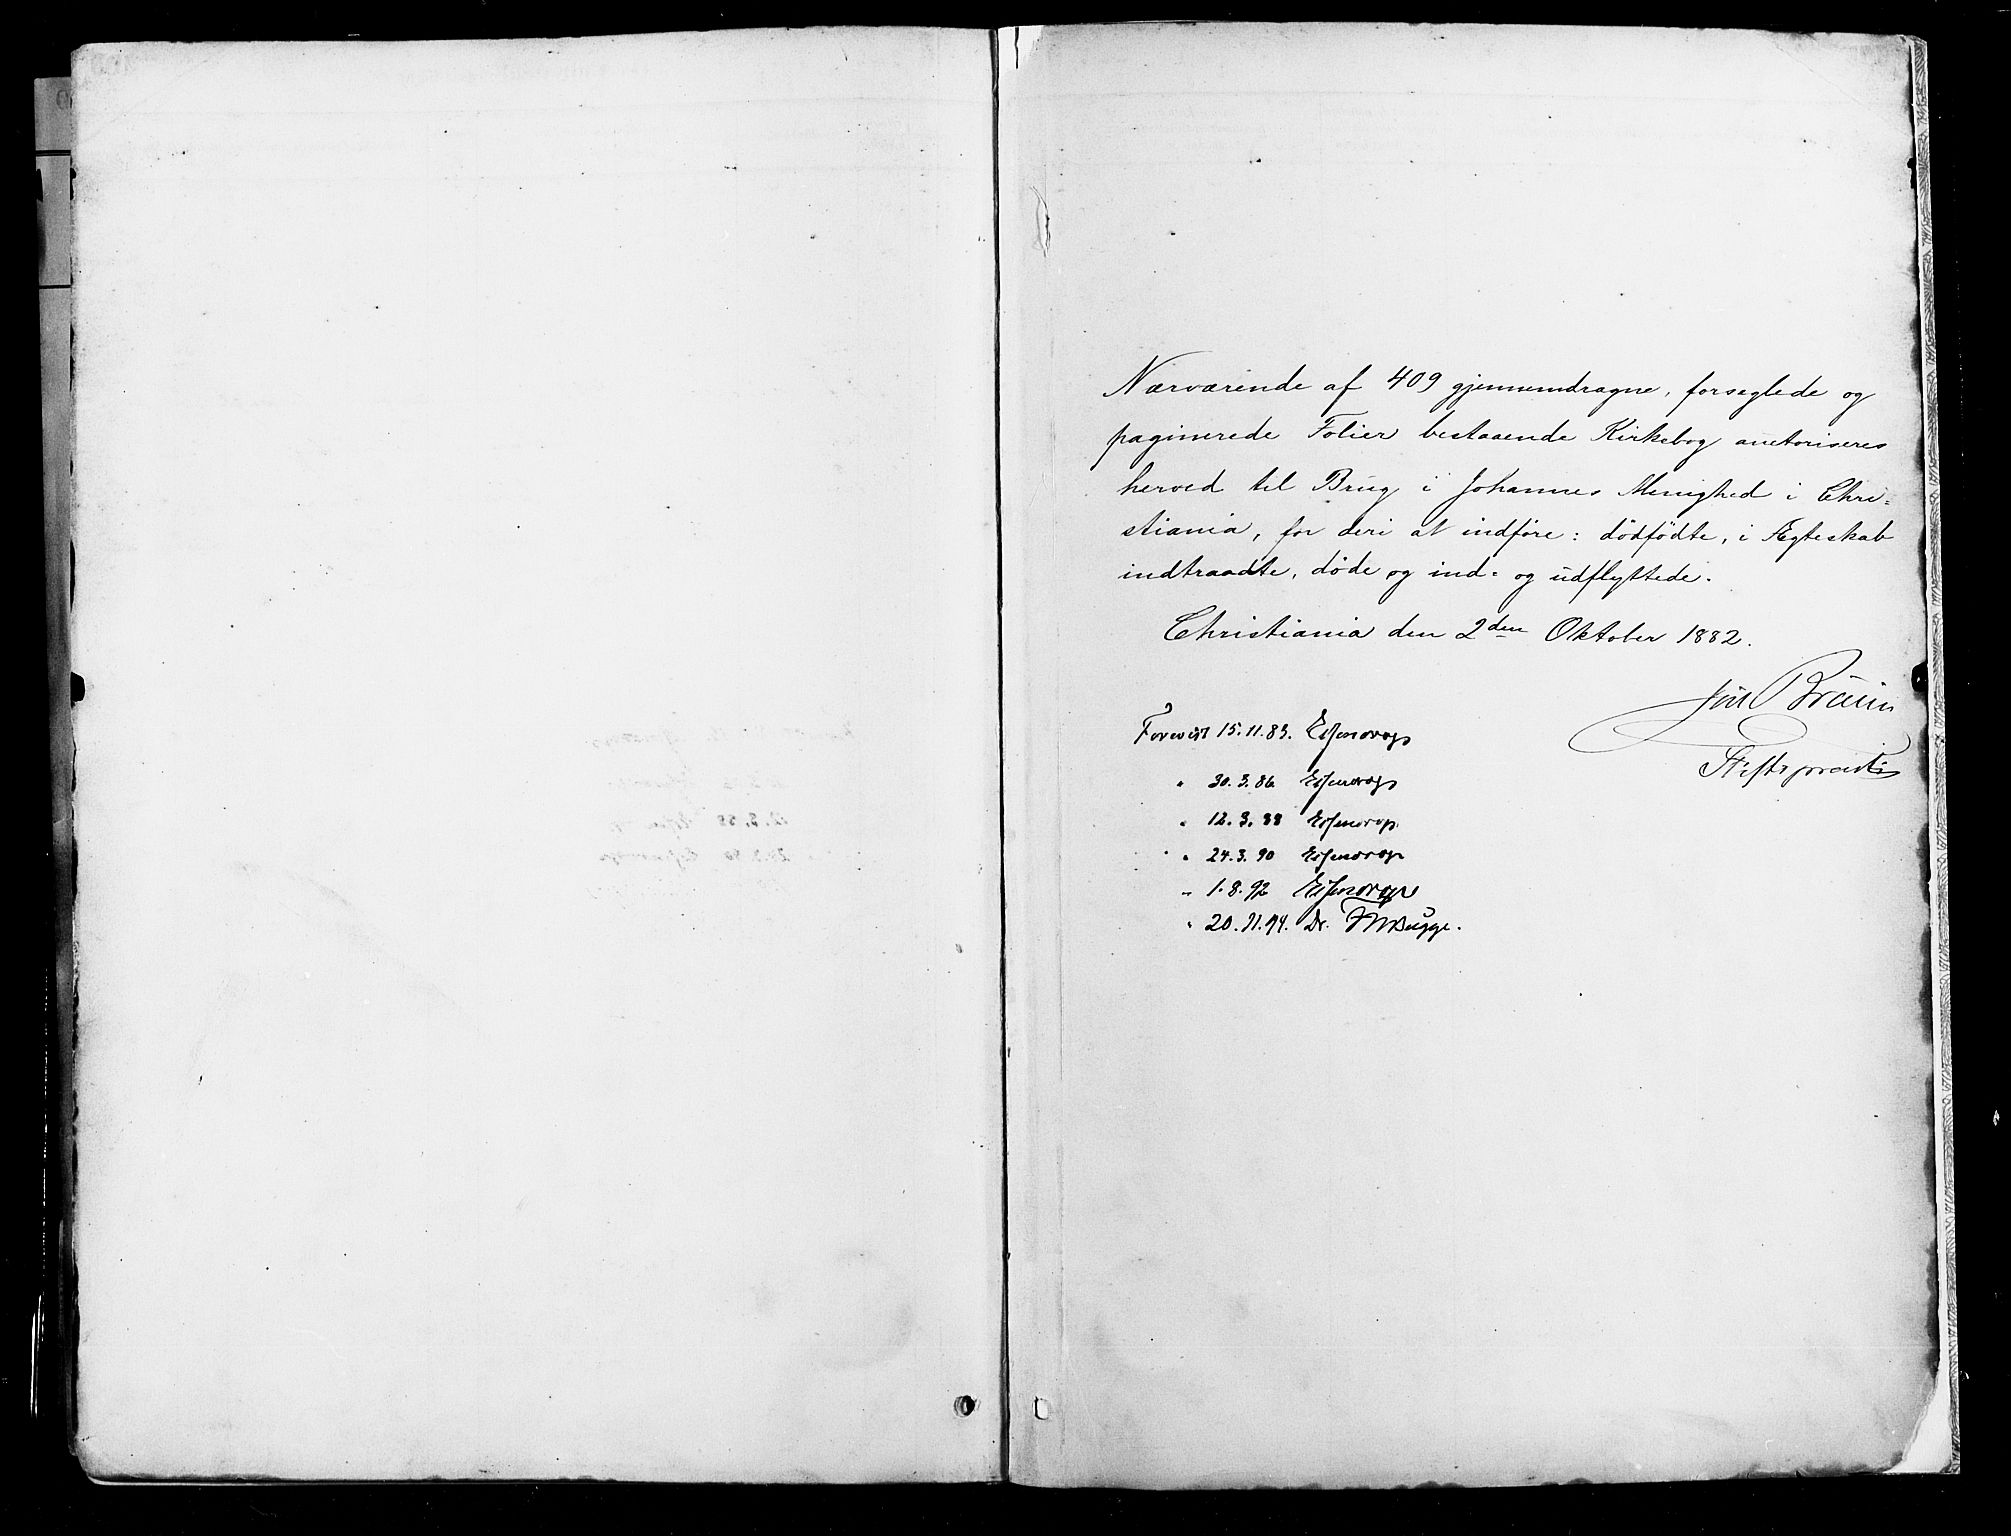 Nærværende af 409 gjennemdragne, forseglede og
paginerede Folier bestaaende Kirkebog auctoriseres
herved til Brug i Johannes Menighed i Chri=
stiania, for deri at indføre: dødfødte, i Ægteskab
indtraadte, døde og ind= og udflyttede.
Christiania den 2den Oktober 1882.
Bruun
Stiftsprovst
Forevist 15.11.83. Essendrop
" 30.3.86 Essendrop
" 12.3.88 Essendrop.
" 24.3.90 Essendrop
" 1.8.92 Essendrop
" 20.11.94. Dr. FWBugge.